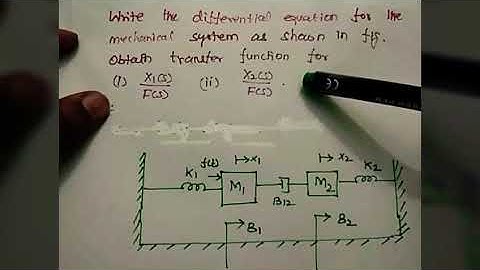 Write the differential equation for the
mechanical system as shown in fig.
Obtain transfer function for
(i) X1(s)/F(s) (ii) X2(s)/F(s) .
K1 f(t) x1 x2 K2
M1 M2
B12
B1 B2